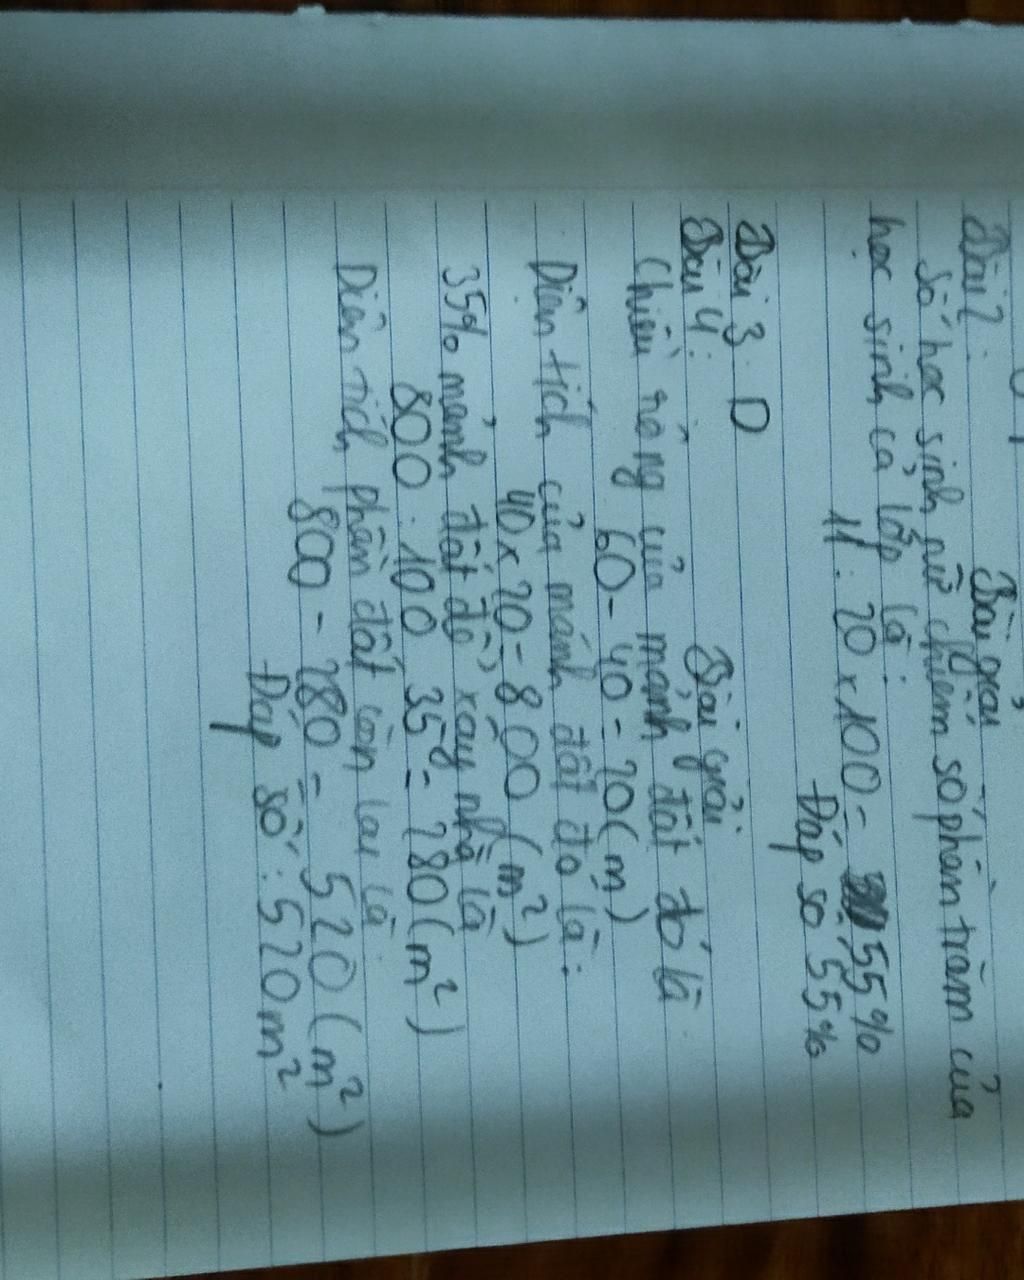 Bài giải
Bài 2:
Số học sinh nữ chiếm số phần trăm của
học sinh cả lớp là:
11 : 20 x 100 = 55%
Đáp số 55%
Bài 3. D
Bài 4: Bài giải
Chiều rộng của mảnh đất đó là
60 - 40 = 20 (m)
Diện tích của mảnh đất đó là:
40 x 20 = 800 (m²)
35% mảnh đất để xây nhà là
800 : 100 35 = 280 (m²)
Diện tích phần đất còn lại là
800 - 280 = 520 (m²)
Đáp số: 520 m²